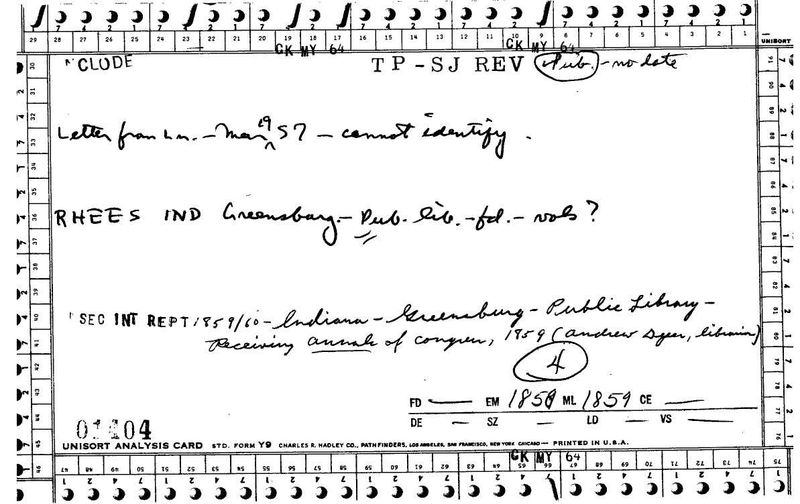 29 28 27 26 25 24 23 22 21 20 19 18 17 16 15 14 13 12 11 10 9 8 7 6 5 4 3 2 1
GK MY 64 GK MY 64 UNISORT
CLODE TP-SJ REV Pub. - no date
Letter from Ln. - Mar 19 57 - cannot identify.
RHEES IND Greensburg - Pub. lib. - fd. - vols?
SEC INT REPT 1859/60 - Indiana - Greensburg - Public Library -
Receiving annals of congress, 1959 (Andrew Dyer, librarian)
4
FD — EM 1859 ML 1859 CE —
DE — SZ — LD — VS —
01404
UNISORT ANALYSIS CARD STD. FORM Y9 CHARLES R. HADLEY CO., PATHFINDERS, LOS ANGELES, SAN FRANCISCO, NEW YORK CHICAGO — PRINTED IN U.S.A.
GK MY 64